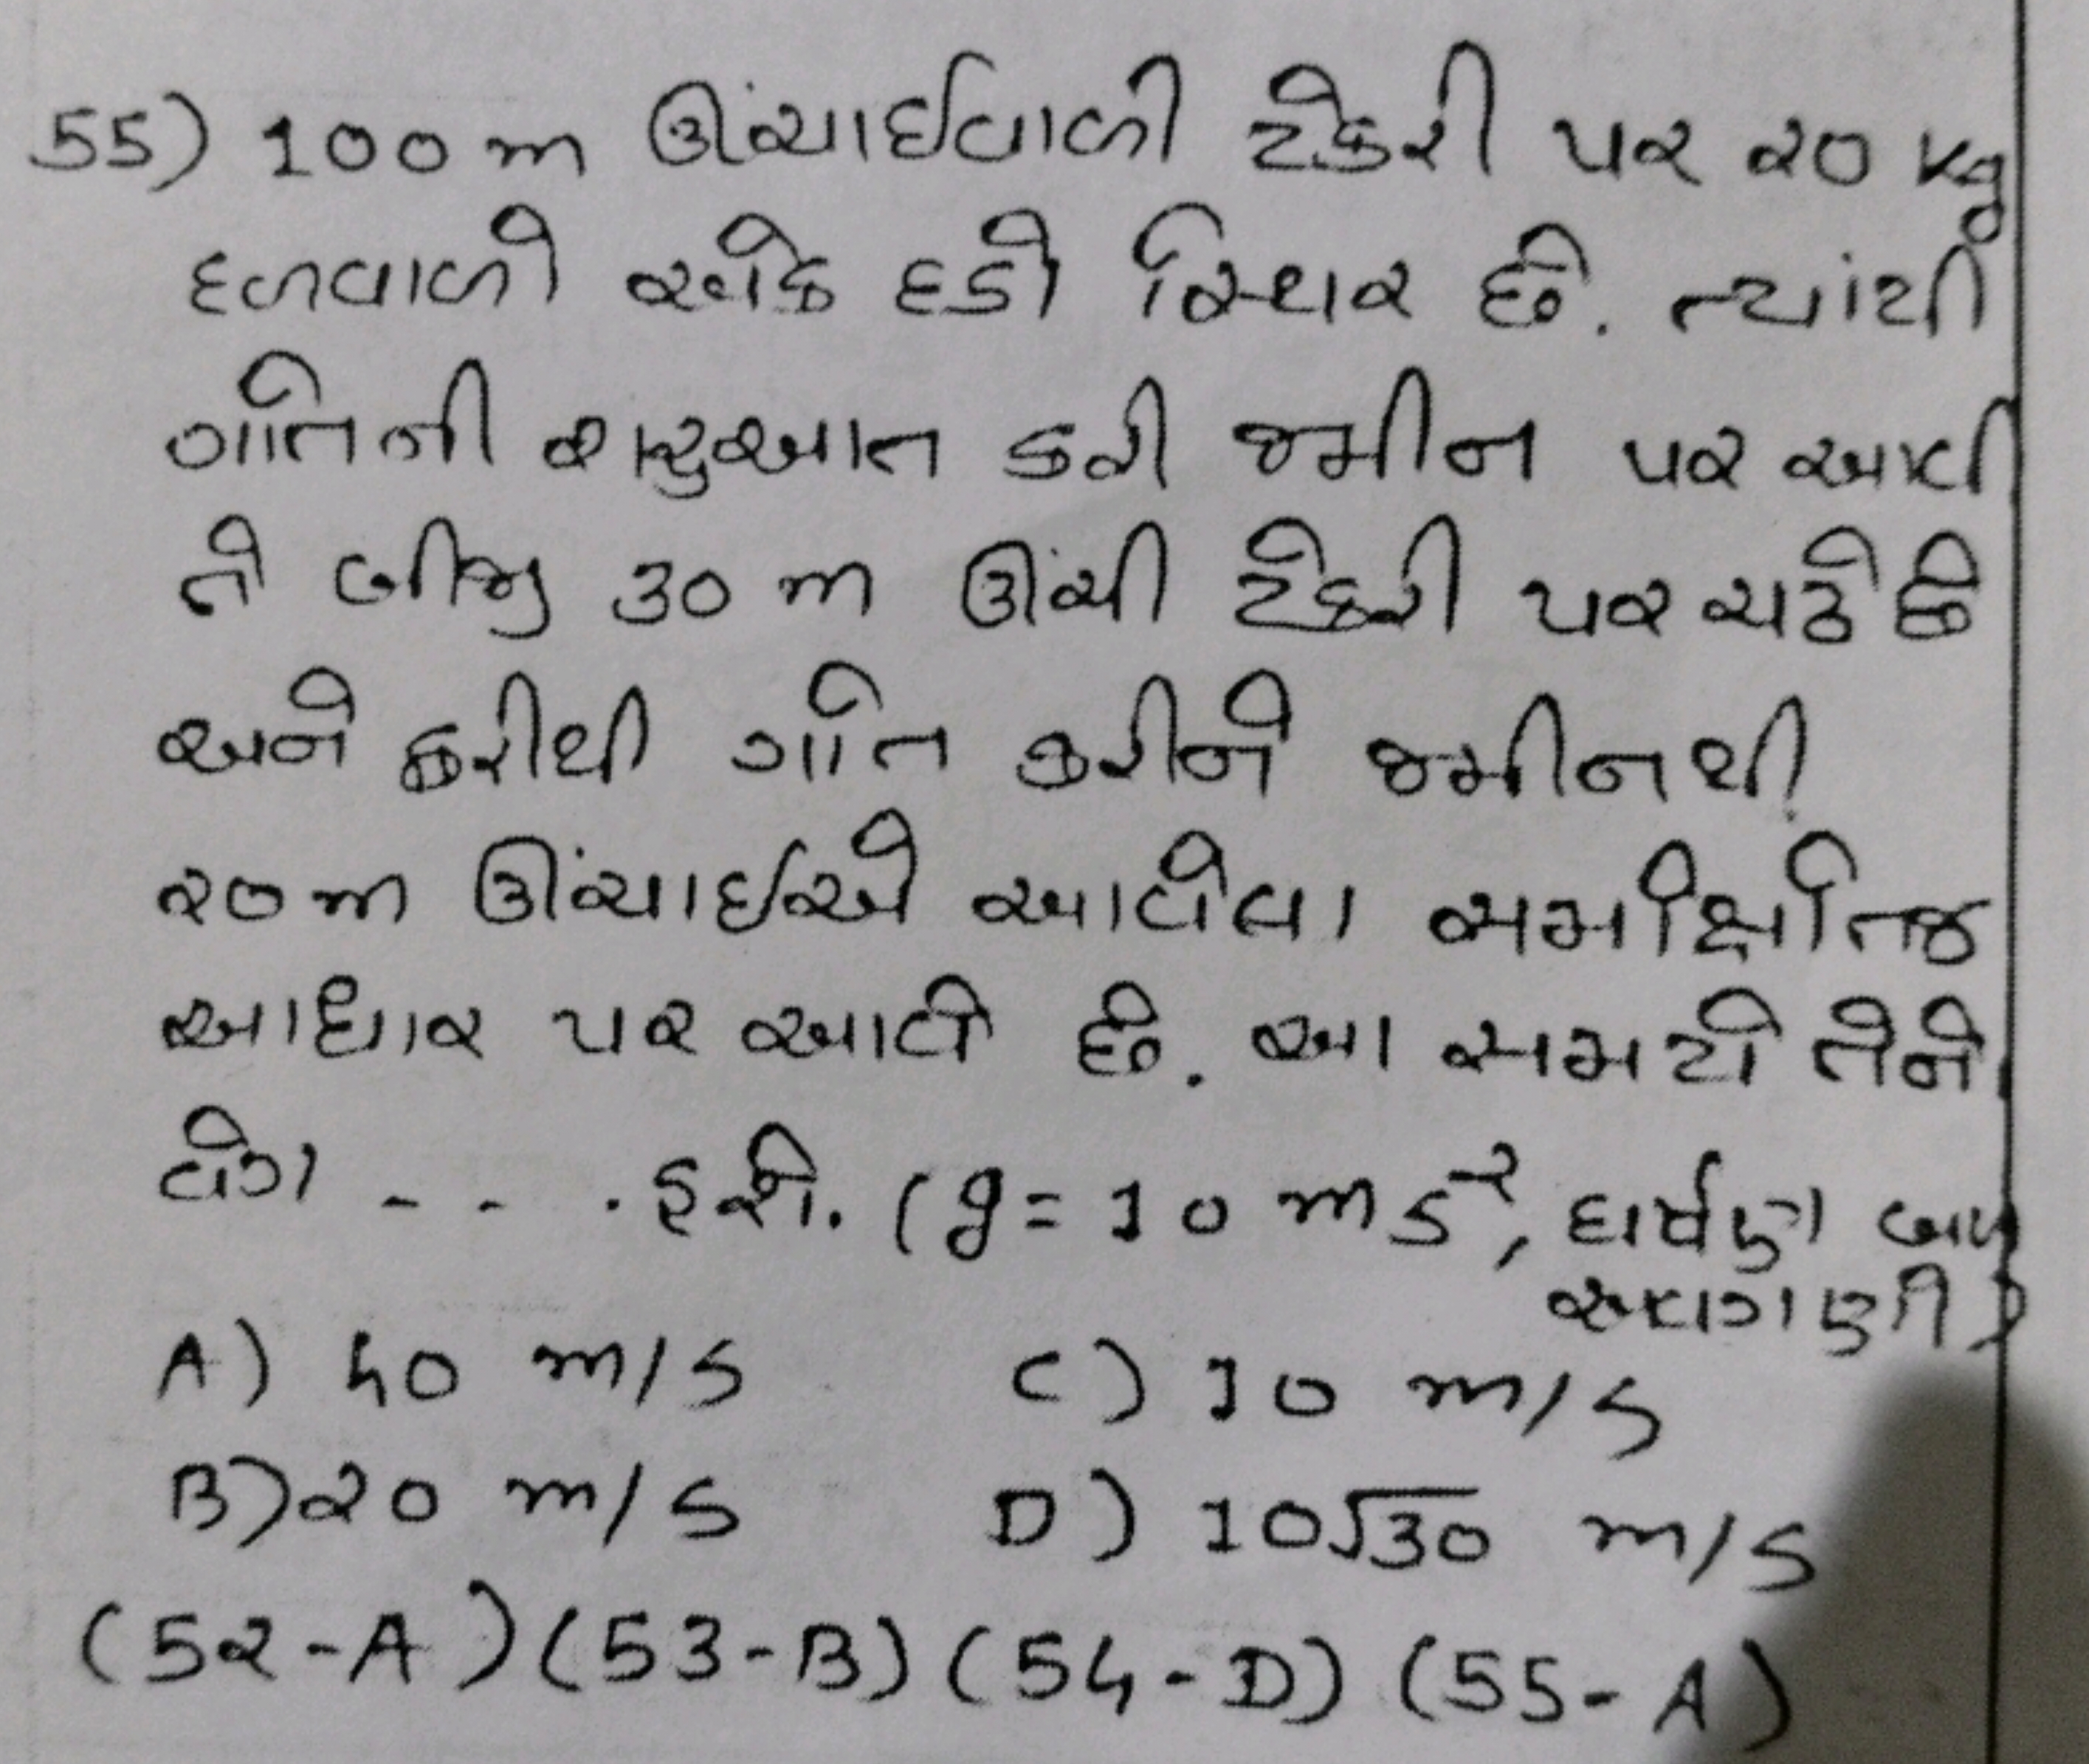 55) 100 m ઊંચાઈવાળી ટેકરી પર ૨0 kg
દળવાળો એક દડો સ્થિર છે. ત્યાંથી
ગતિની શરુઆત કરી જમીન પર આવી
તે બીજી 30 m ઊંચી ટેકરી પર ચઢે છે
અને ફરીથી ગતિ કરીને જમીનથી
૨0 m ઊંચાઈએ આવેલા સમક્ષિતિજ
આધાર પર આવે છે. આ સમયે તેનો
વેગ - - . હશે. (g = 10 ms⁻², ઘર્ષણ બળ
અવગણો)
A) 40 m/s C) 10 m/s
B) ૨0 m/s D) 10√30 m/s
(5૨-A) (53-B) (54-D) (55-A)